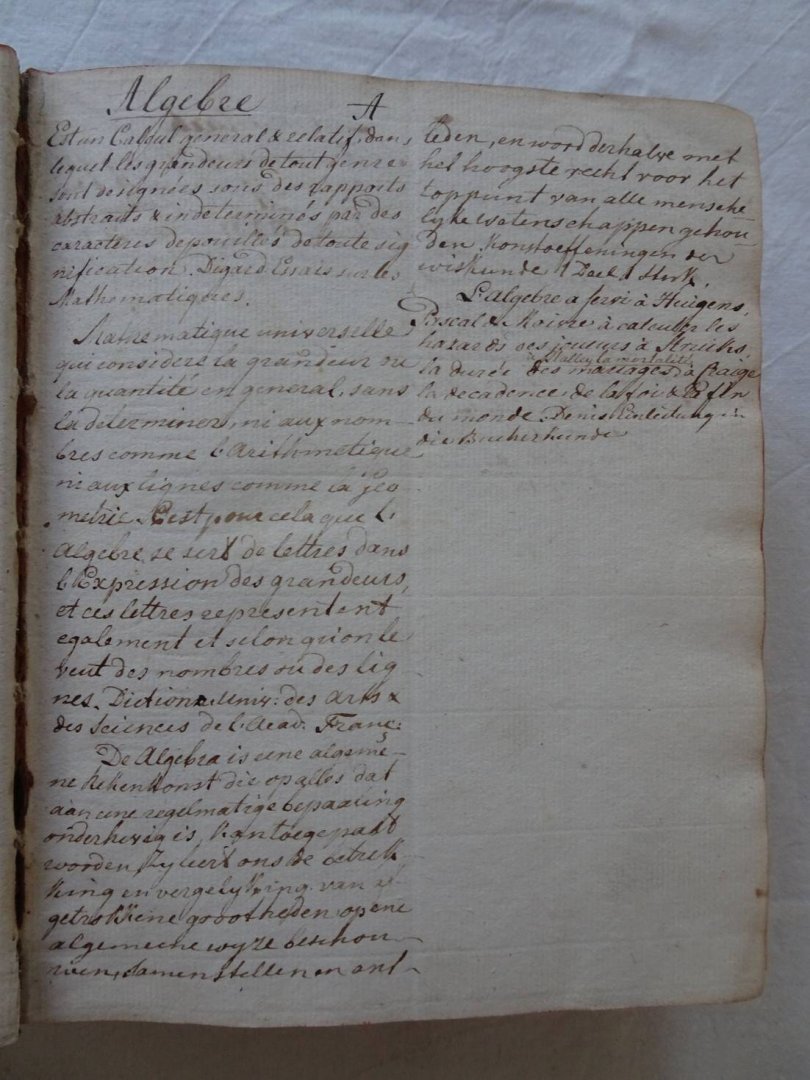 Algebre
A
Est un Calcul general & relatif, dans
lequel les grandeurs de tout genre
sont designées sous des rapports
abstraits & indeterminés par des
caracteres depouillés de toute sig
nification. Digard Essais sur les
Mathematiques.
Mathematique universelle
qui considere la grandeur ou
la quantité en general, sans
la determiner, ni aux nom-
bres comme l'Arithmetique
ni aux lignes comme la geo
metrie. C'est pour cela que l'
Algebre se sert de lettres dans
l'Expression des grandeurs,
et ces lettres representent
egalement et selon qu'on le
veut des nombres ou des lig
nes. Diction. univ: des Arts &
des sciences de l'Acad. Franç:
De Algebra is eene algemee-
ne Rekenkonst die op alles dat
aan eene regelmatige bepaaling
onderhevig is, kan toegepast
worden, Zy leert ons de betrek
king en vergelykking van af
getrokkene grootheden op eene
algemeene wyze beschou-
wen, samenstellen en ont-
leden, en word derhalve met
het hoogste recht voor het
toppunt van alle mensche
lyke wetenschappen gehou
den Konstoeffeningen der
wiskunde 1 Deel 1 Stuk.
L'algebre a servi à Huigens,
Pascal & Moivre à calculer les
hazards des joueurs à Struiks,
à Halley la mortalité
la durée des mariages à Craige
la decadence de la foi & la fin
du monde. Denis Einleitung in
die Bucherkunde